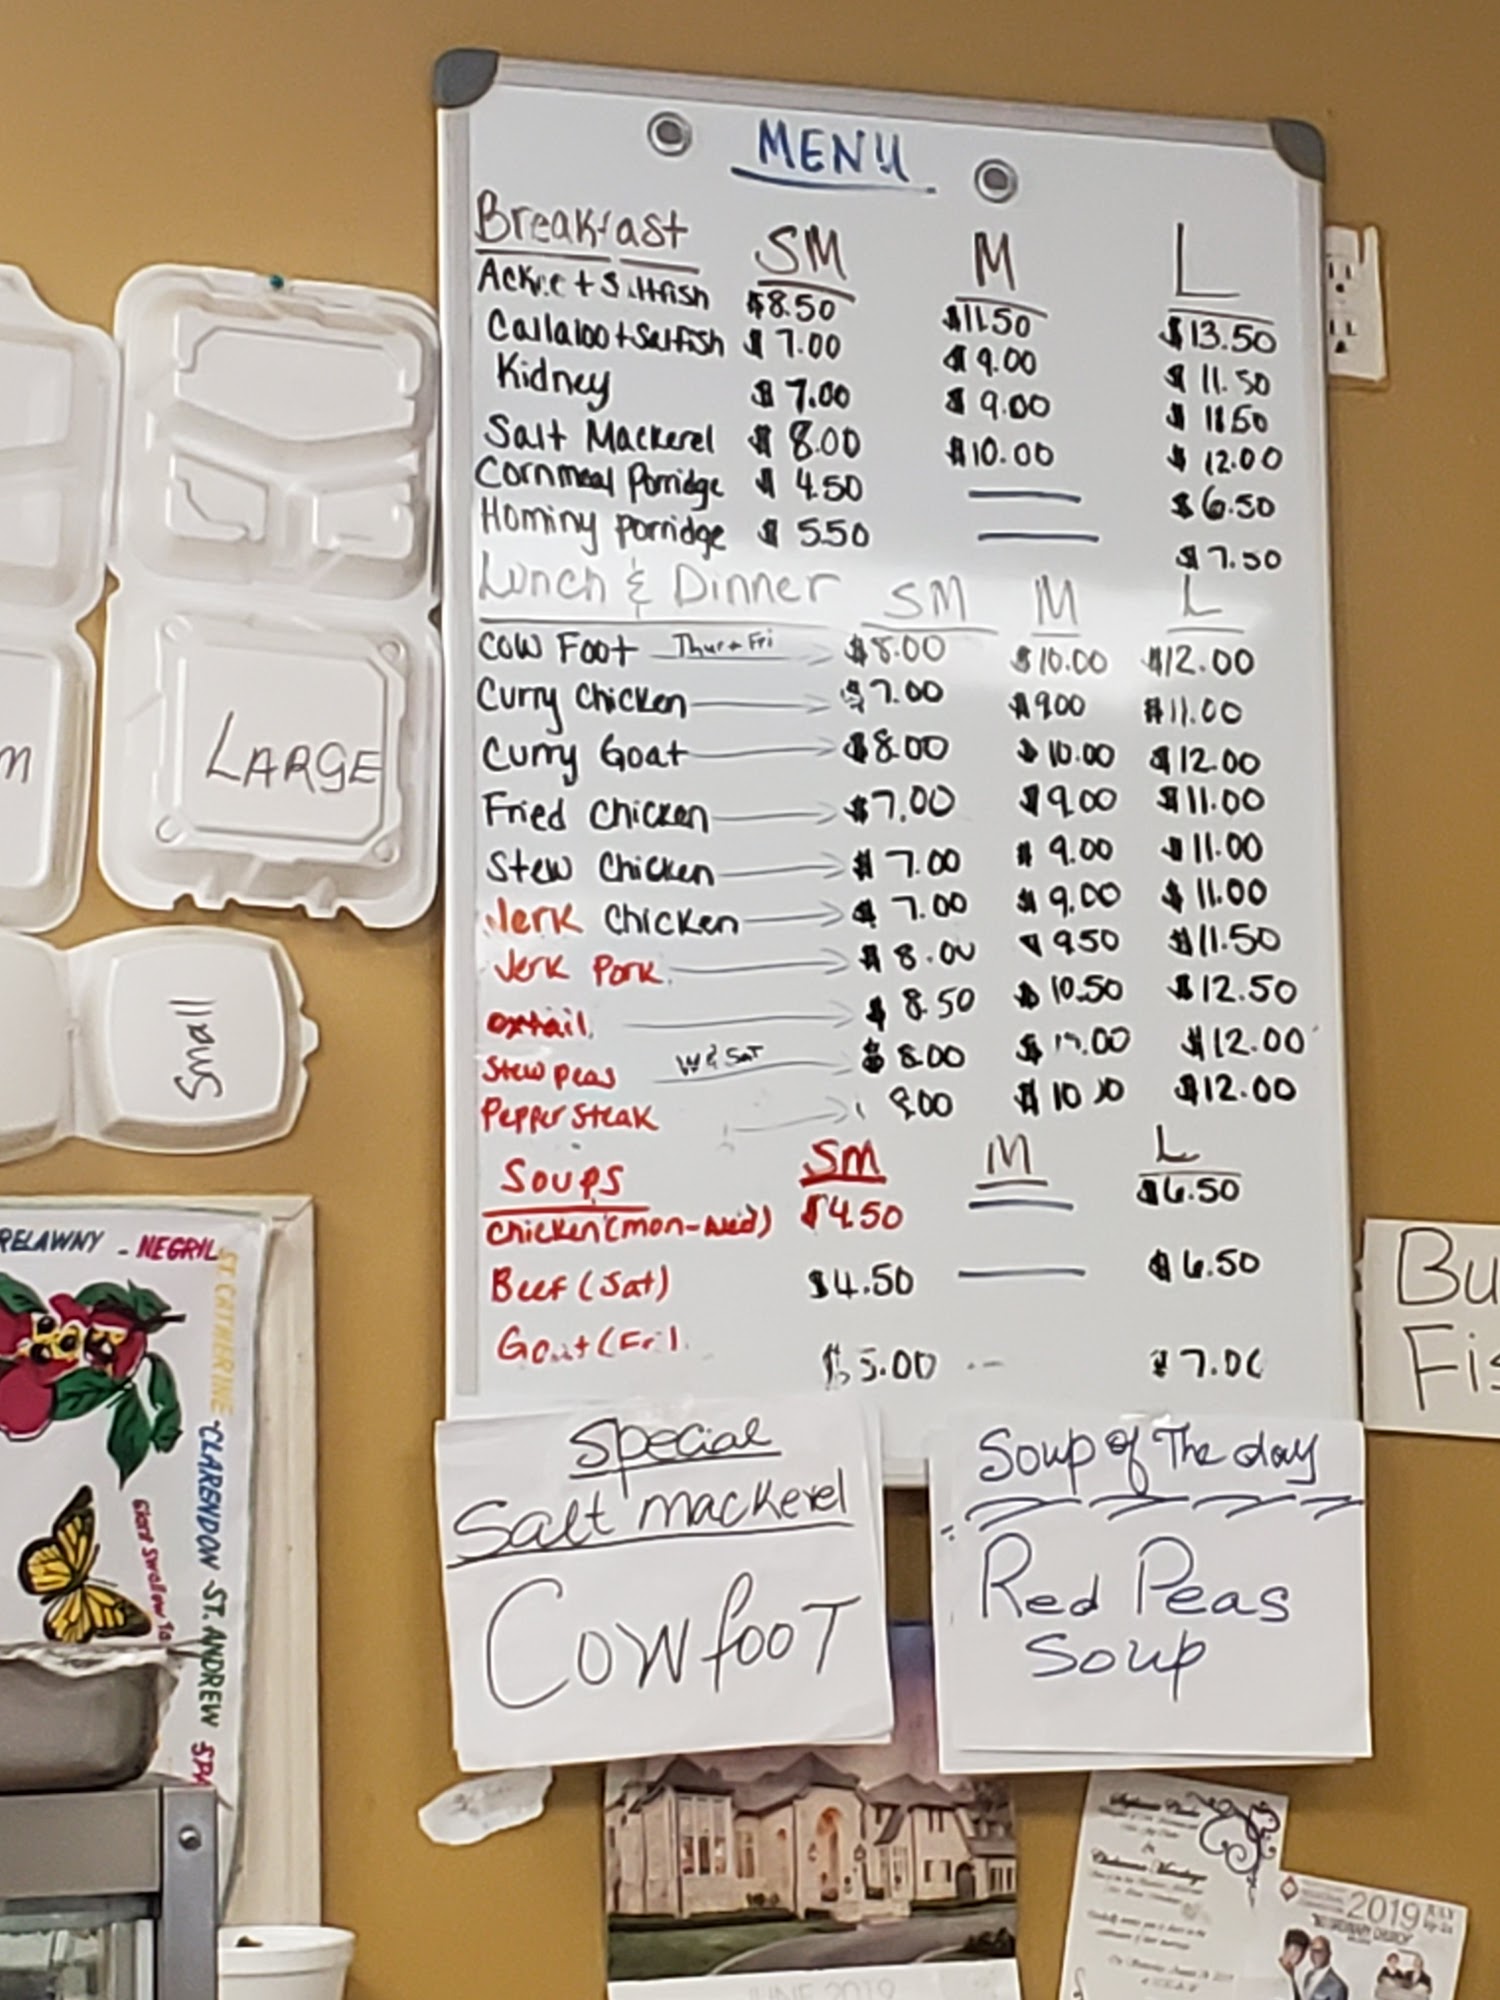 MENU
Breakfast SM M L
Ackee + Saltfish $8.50 $11.50 $13.50
Callaloo + Saltfish $7.00 $9.00 $11.50
Kidney $7.00 $9.00 $11.50
Salt Mackerel $8.00 $10.00 $12.00
Cornmeal Porridge $4.50 $6.50
Hominy Porridge $5.50 $7.50
Lunch & Dinner SM M L
Cow Foot Thur + Fri $8.00 $10.00 $12.00
Curry Chicken $7.00 $9.00 $11.00
Curry Goat $8.00 $10.00 $12.00
Fried Chicken $7.00 $9.00 $11.00
Stew Chicken $7.00 $9.00 $11.00
Jerk Chicken $7.00 $9.00 $11.00
Jerk Pork $8.00 $9.50 $11.50
oxtail $8.50 $10.50 $12.50
Stew peas W & Sat $8.00 $10.00 $12.00
Pepper Steak 8.00 $10.00 $12.00
Soups SM M L
Chicken (mon-wed) $4.50 $6.50
Beef (Sat) $4.50 $6.50
Goat (Fri) $5.00 $7.00
Special
Salt mackerel
Cowfoot
Soup of The day
Red Peas
Soup
M
LARGE
Small
RELAWNY - NEGRIL
ST. CATHERINE
CLARENDON ST. ANDREW
Giant Swallow
Bu
Fis
JUNE 2019
2019 JULY